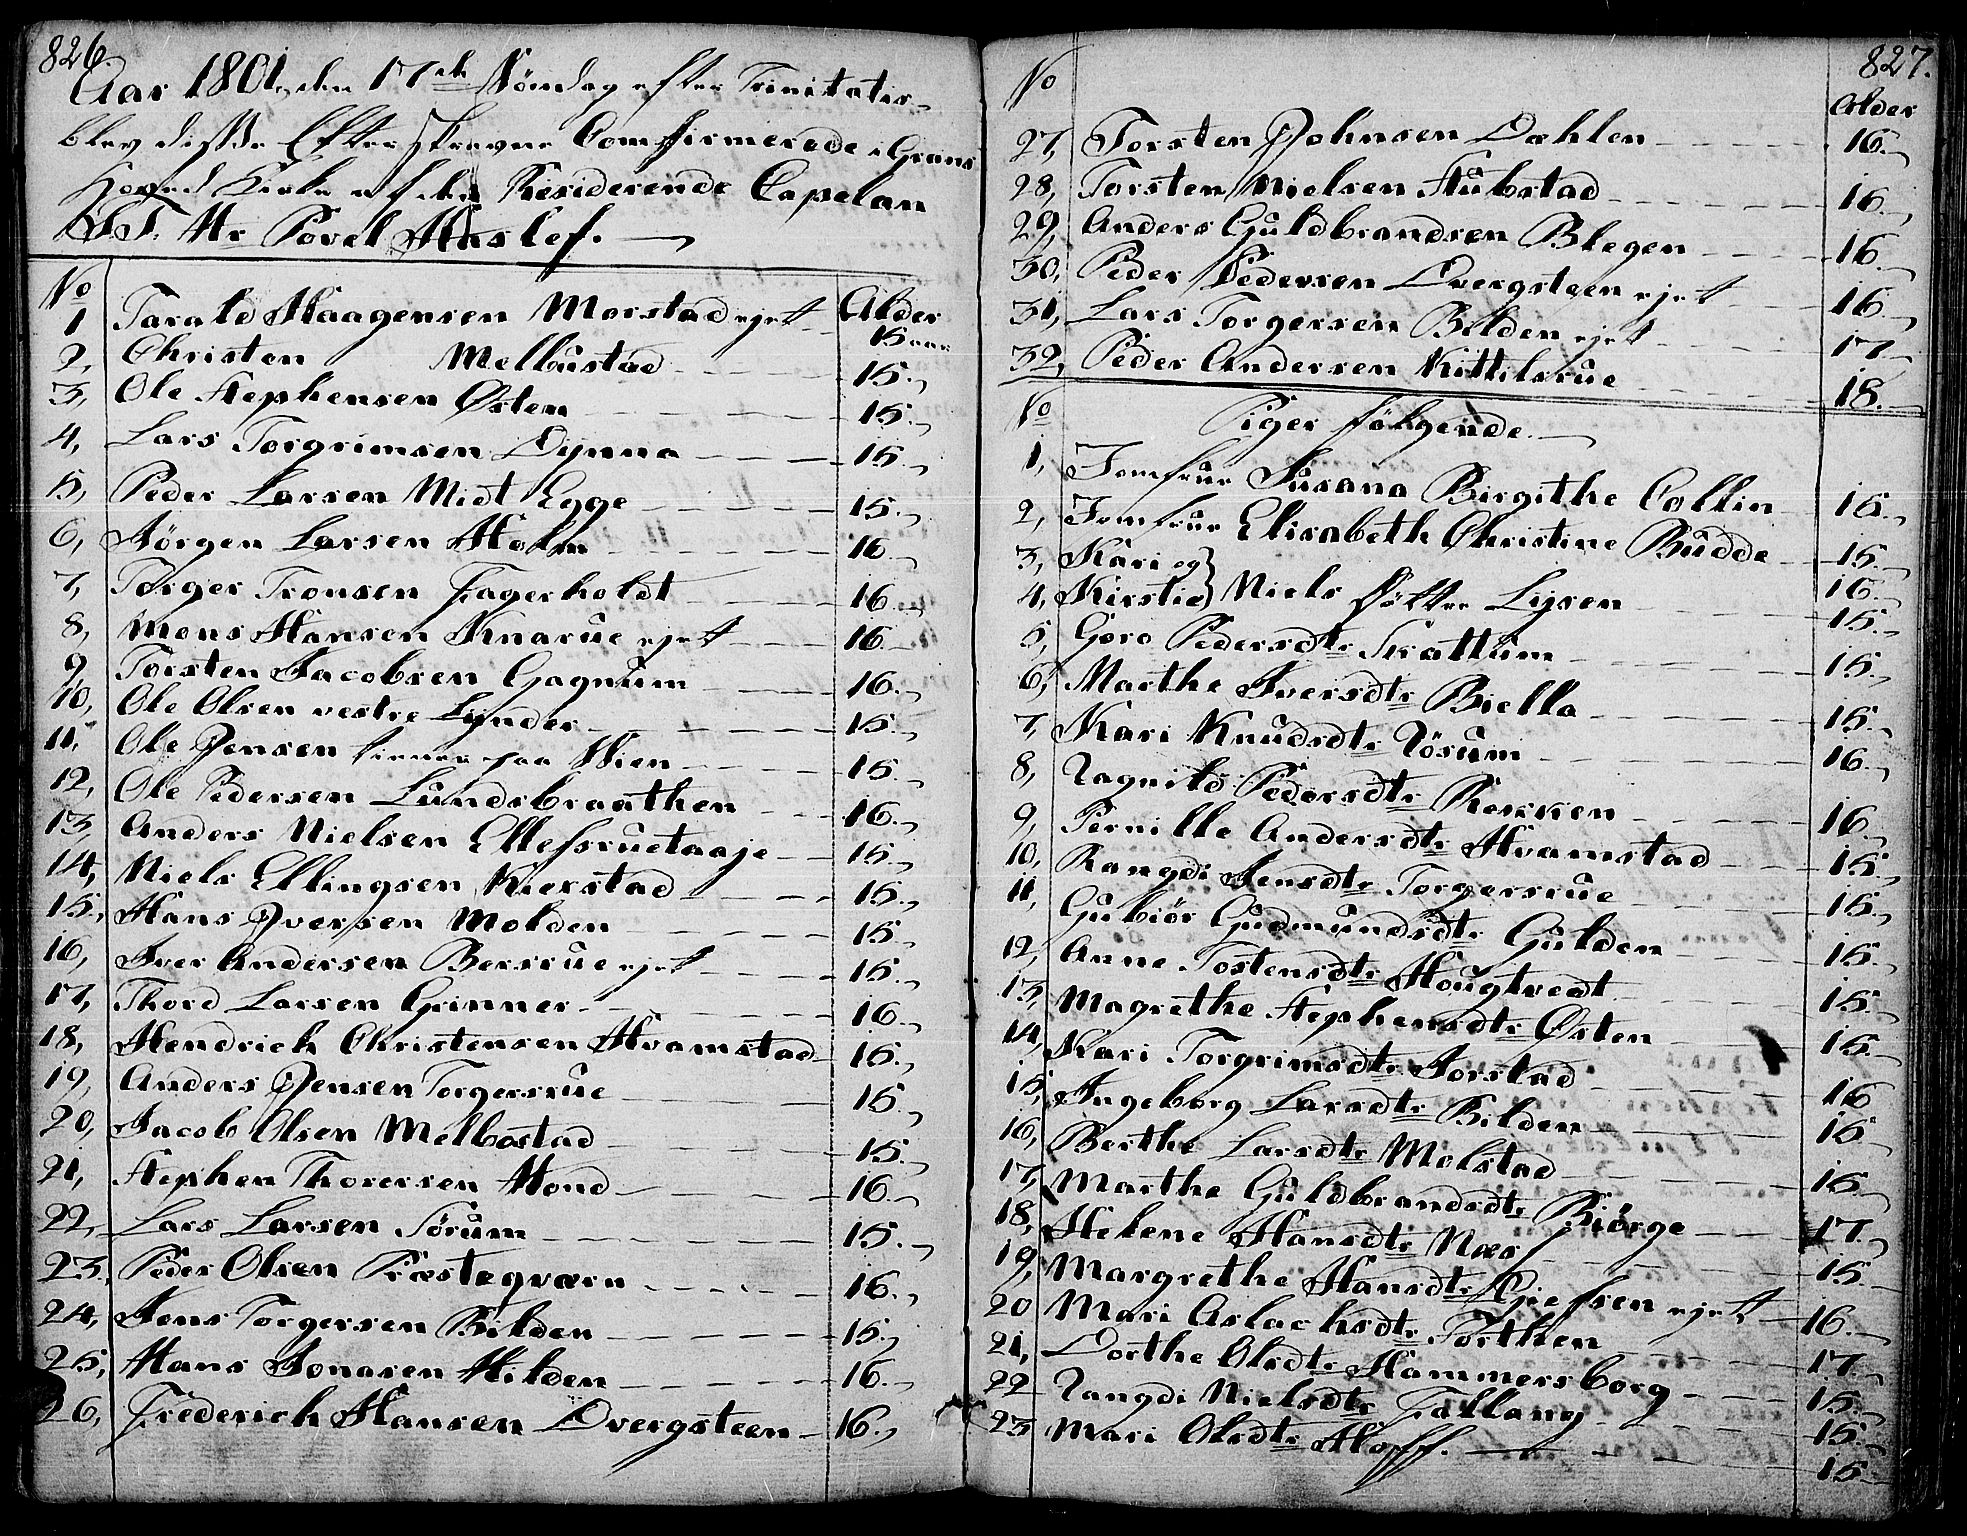 826.
Aar 1801, den 17de Söndag efter Trinitatis
blev disse Efterskrevne Comfirmerede i Grans
Hoved Kirke af den Residerende Capelan
S. T. Hr Povel Haslef.
No Alder
1 Tarald Haagensen Morstad ejet 15 aar
2, Christen Melbustad 15.
3, Ole Stephensen Østen 15.
4, Lars Torgrimsen Dynna 15.
5, Peder Larsen Midt Egge 15.
6, Jörgen Larsen Holm 16
7, Torger Tronsen Fagerholdt 16.
8, Mons Hansen Knarue ejet 16.
9, Torsten Jacobsen Gagnum 16.
10, Ole Olsen vestre Lynder 15.
11, Ole Jensen tiener paa Hien 15.
12, Ole Pedersen Lundsbraathen 16.
13, Anders Nielsen Ellefsruetaaje 15.
14, Niels Ellingsen Kierstad 15.
15, Hans Iversen Molden 15.
16, Iver Andersen Bersrue ejet 15.
17, Thord Larsen Grinner 16.
18, Hendrich Christensen Hvamstad 15.
19, Anders Jensen Torgersrue 15.
20, Jacob Olsen Melbostad 15.
21, Stephen Thorersen Hond 16.
22, Lars Larsen Sörum 15.
23, Peder Olsen Præsteqværn 16.
24, Jens Torgersen Bilden 15.
25, Hans Jonasen Hilden 16.
26, Frederich Hansen Dvergsteen 16.
827.
No Alder
27, Torsten Johnsen Dæhlen 16.
28, Torsten Nielsen Hubstad 16.
29, Anders Guldbrandsen Blegen 16.
30, Peder Pedersen Dvergsteen ejet 16.
31, Lars Torgersen Bilden ejet 17
32, Peder Andersen Kittilsrue 18.
No Piger fölgende
1, Jomfrue Susana Birgithe Collin 15.
2, Jomfrue Elisabeth Christine Budde 15.
3, Kari og 16.
4, Kirstie Niels Døttre Lysen 15.
5, Goro Pedersdtr Skattum 15.
6, Marthe Iversdtr Biella 15.
7, Kari Knudsdtr Rösum 16.
8, Ragnild Pedersdtr Rekken 16.
9, Pernille Andersdtr Hvamstad 15.
10, Rangdi Jensdtr Torgersrue 15.
11, Gubiör Gudmundsdtr Gulden 15.
12, Anne Tostensdtr Hougtvedt 15.
13, Magrethe Stephensdtr Østen 15.
14, Kari Torgrimsdtr Jorstad 16
15, Ingeborg Larsdtr Bilden 15
16, Berthe Larsdtr Molstad 15.
17, Marthe Guldbrandsdtr Biörge 17.
18, Helene Hansdtr Næs 15.
19, Margrethe Hansdtr ejet 16.
20 Mari Aslachsdtr Torthen 17.
21, Dorthe Olsdtr Hammersborg 15.
22 Rangdi Nielsdtr Fallang 15.
23 Mari Olsdtr Hoff. 15.